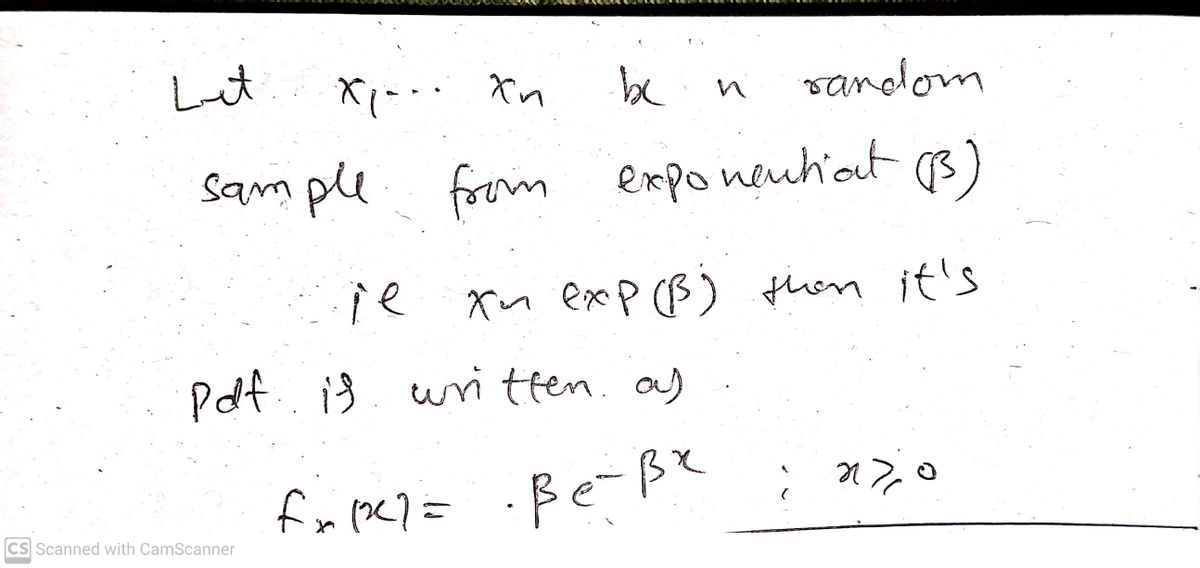 Let x₁... xn be n random
sample from exponential (β)
ie x~ exp(β) then it's
pdf is written as
fx(x) = βe^-βx ; x≥0
CS Scanned with CamScanner